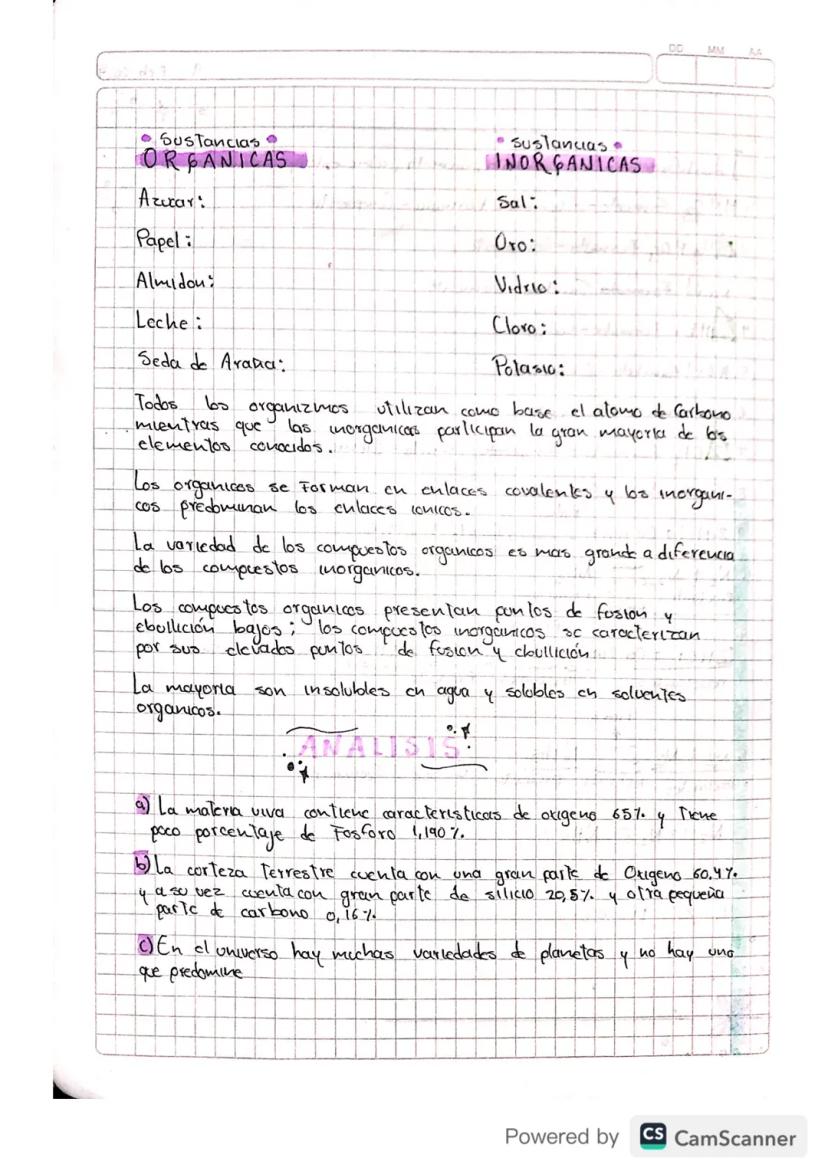 DD MM AA
• Sustancias •
ORGANICAS
• Sustancias •
INORGANICAS
Azucar:
Sal:
Papel:
Oro:
Almidon:
Vidrio:
Leche:
Cloro:
Seda de Araña:
Potasio:
Todos los organizmos utilizan como base el atomo de Carbono
mientras que las inorganicas participan la gran mayoria de los
elementos conocidos.
Los organicos se Forman en enlaces covalentes y los inorgani-
cos predominan los enlaces ionicos.
La variedad de los compuestos organicos es mas grande a diferencia
de los compuestos inorganicos.
Los compuestos organicos presentan puntos de fusion y
ebullición bajos; los compuestos inorganicos se caracterizan
por sus elevados puntos de fusion y ebullición
La mayoria son insolubles en agua y solubles en solventes
organicos.
ANALISIS
a) La materia viva contiene caracteristicas de oxigeno 65% y Tiene
poco porcentaje de Fosforo 1,190%.
b) La corteza Terrestre cuenta con una gran parte de Oxigeno 60,4%.
y a su vez cuenta con gran parte de silicio 20,5% y otra pequeña
parte de carbono 0,16%.
c) En el universo hay muchas variedades de planetas y no hay uno
que predomine
Powered by CS CamScanner